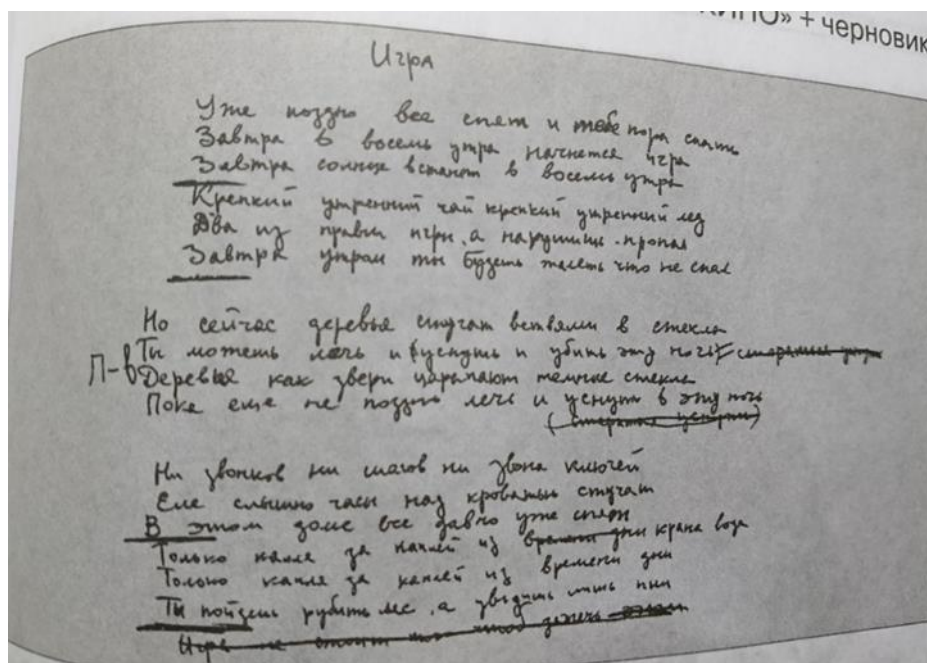 КИНО» + черновик
Игра
Уже поздно все спят и тебе пора спать
Завтра в восемь утра начнется игра
Завтра солнце встанет в восемь утра
Крепкий утренний чай крепкий утренний лед
Два из правил игры, а нарушишь - пропал
Завтра утром ты будешь жалеть что не спал
Но сейчас деревья стучат ветвями в стекла
Ты можешь лечь и уснуть и убить эту ночь
П-в Деревья как звери царапают темные стекла
Пока еще не поздно лечь и уснуть в эту ночь
Ни звонков ни шагов ни звона ключей
Еле слышно часы над кроватью стучат
В этом доме все давно уже спят
Только капля за каплей из времени дни крана вода
Только капля за каплей из времени дни
Ты пойдешь рубить лес, а увидишь лишь пни
Игра не стоит